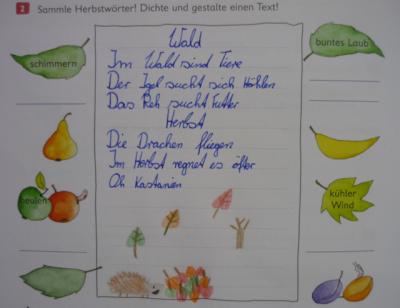 2 Sammle Herbstwörter! Dichte und gestalte einen Text!
schimmern
buntes Laub
Wald
Im Wald sind Tiere
Der Igel sucht sich Höhlen
Das Reh sucht Futter
Herbst
Die Drachen fliegen
Im Herbst regnet es öfter
Oh Kastanien
heulen
kühler
Wind